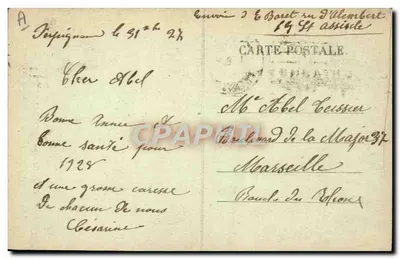 A
Envoi d E Boret rue d'Alembert
19 St assiscle
Perpignan le 31 Xbre 27
CARTE POSTALE
Cher Abel
Bonne année et
bonne santé pour
1928
et une grosse caresse
de chacun de nous
Césarine
Mr Abel Teissier
Boulevard de la Major 37
Marseille
Bouches du Rhone
CPAPHIL